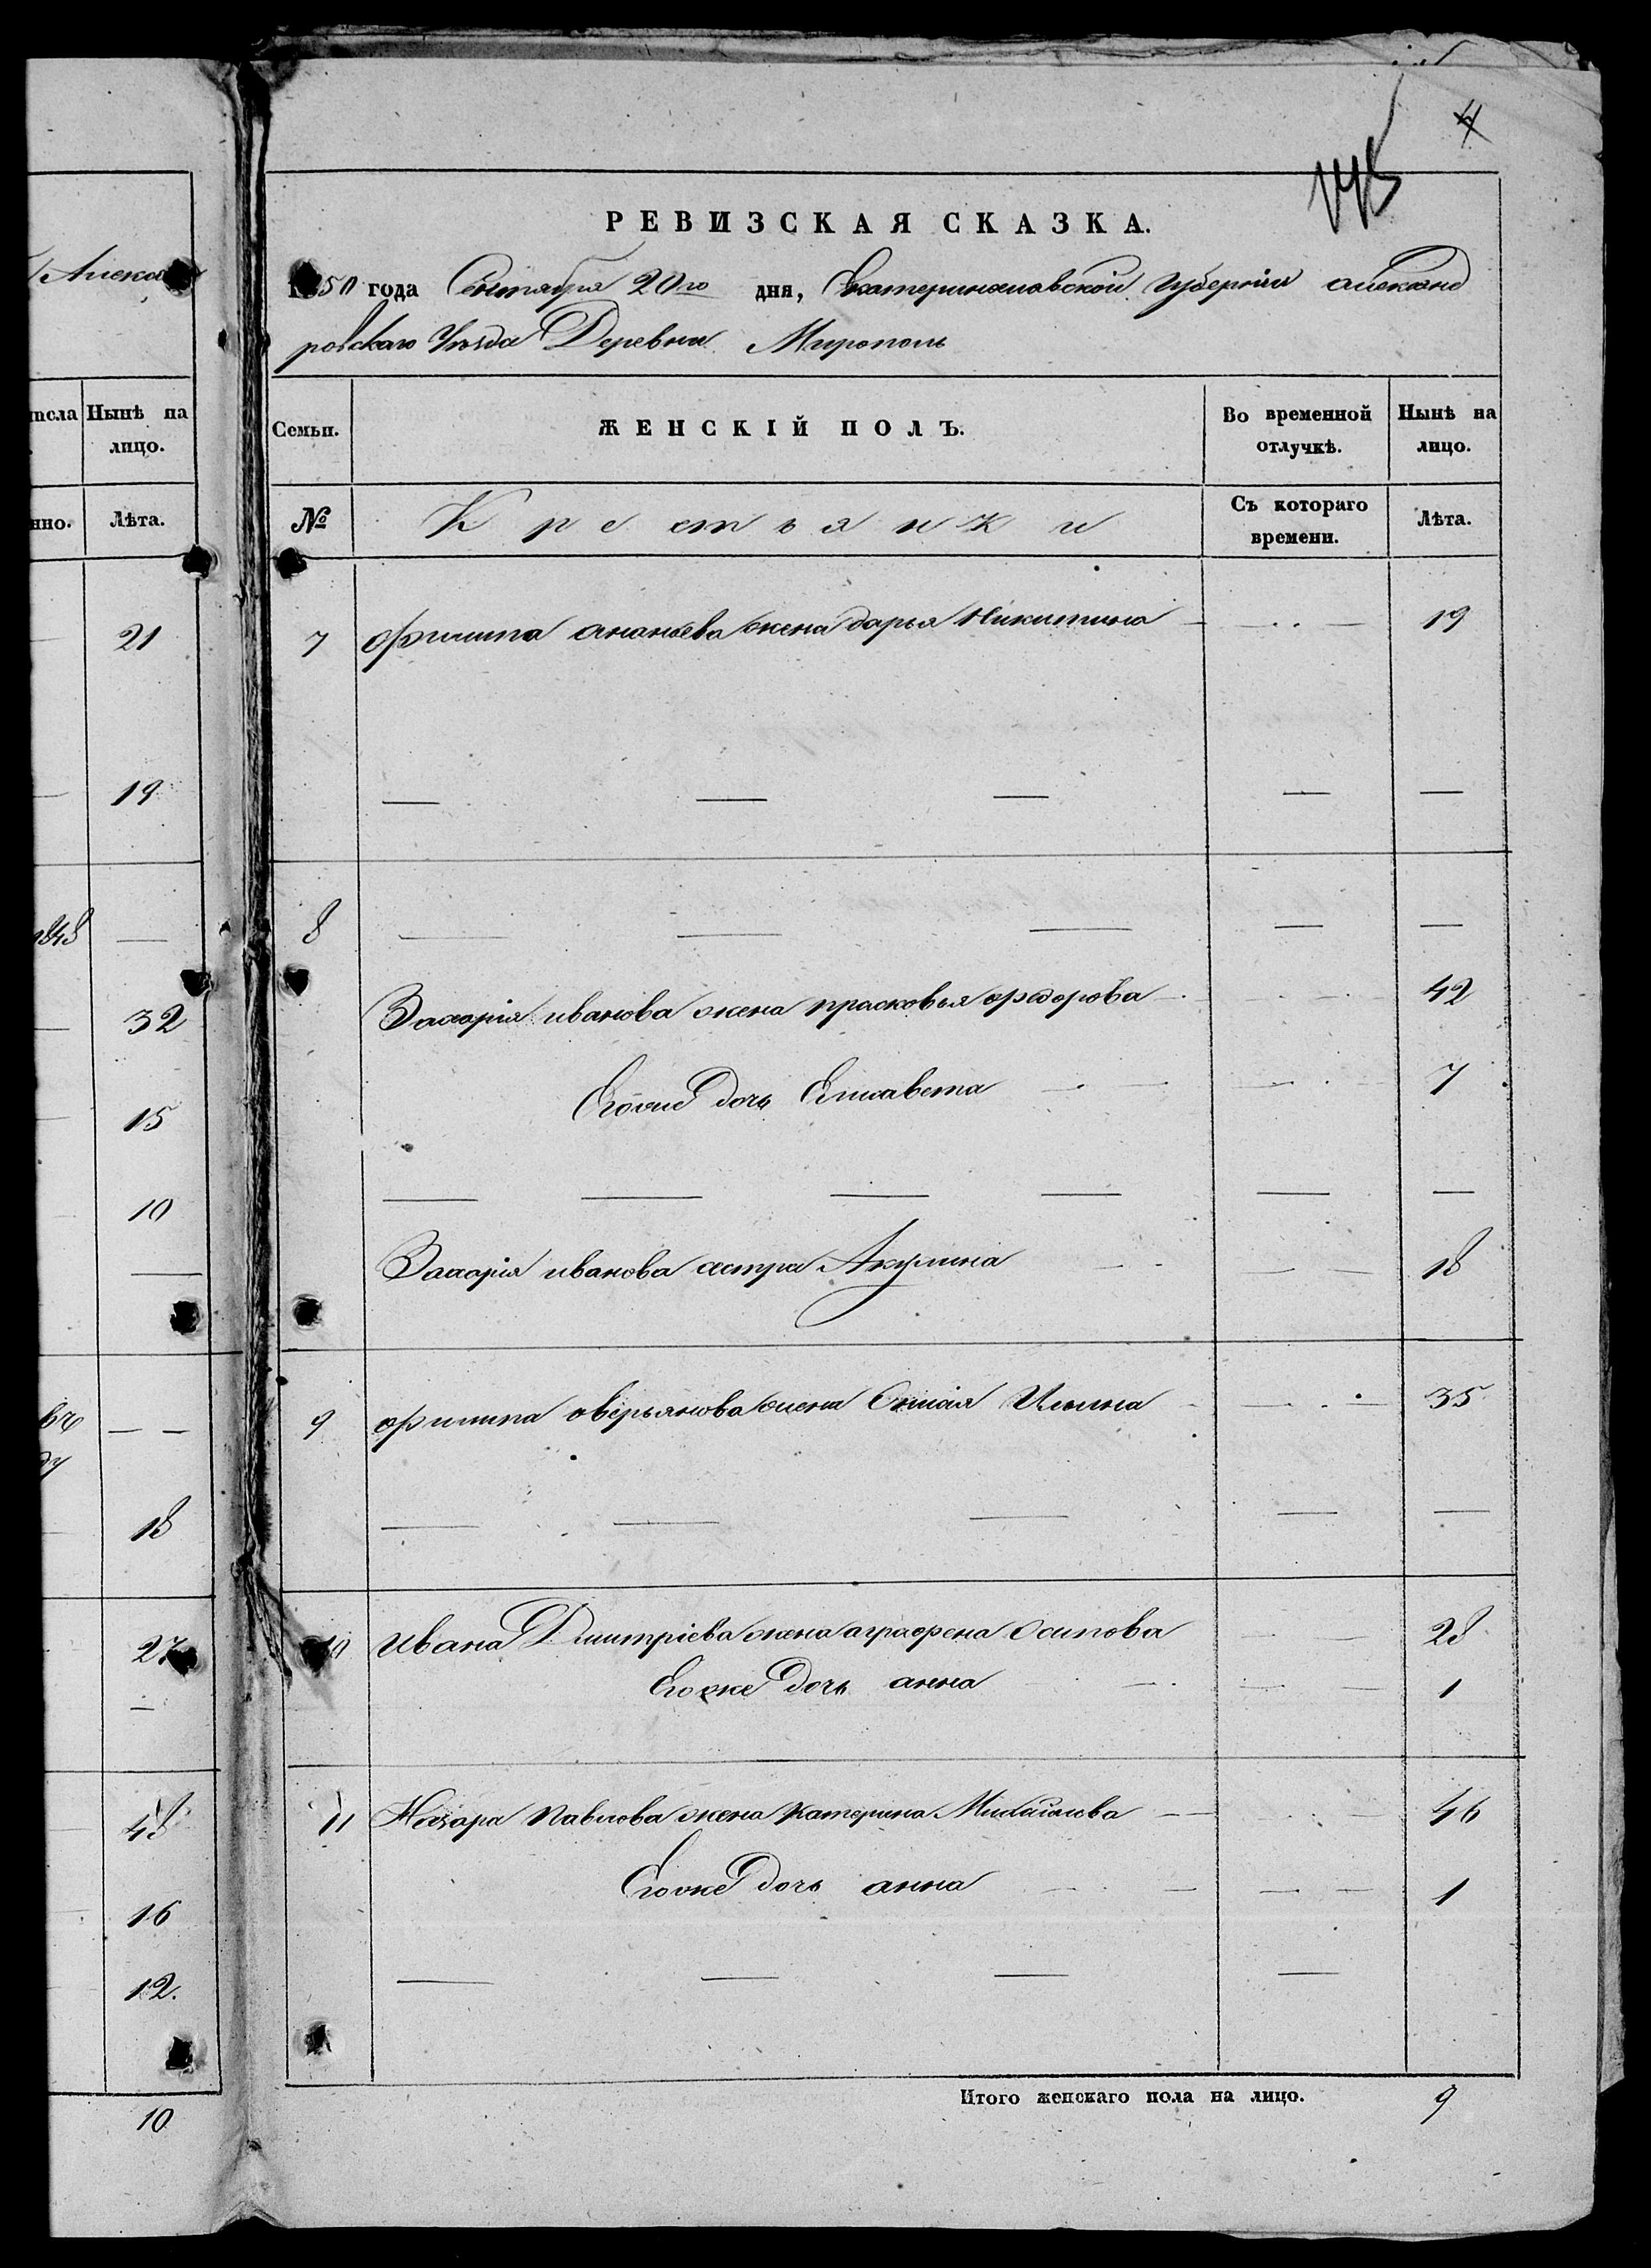 Алекса
исла
Нынѣ на
лицо.
нно.
Лѣта.
21
19
1848
32
15
10
18
27
48
16
12.
10
4
145
РЕВИЗСКАЯ СКАЗКА.
1850 года Сентября 20го дня, Екатеринославской Губерніи александ
ровскаго Уѣзда Деревни Мирополь
Семьи.
ЖЕНСКІЙ ПОЛЪ.
Во временной
отлучкѣ.
Нынѣ на
лицо.
№
Крестьянки
Съ котораго
времени.
Лѣта.
7 филипа ананьева жена дарья Никитина 19
8
Захарія иванова жена прасковья федорова 42
Егоже дочь Елисавета 7
Захарія иванова сестра Акулина 18
9 филипа оверьянова жена Ильина 35
10 ивана Дмитріева жена аграфена Осипова 28
Егоже дочь анна 1
11 Назара Павлова жена Катерина Михайлова 46
Егоже дочь анна 1
Итого женскаго пола на лицо. 9